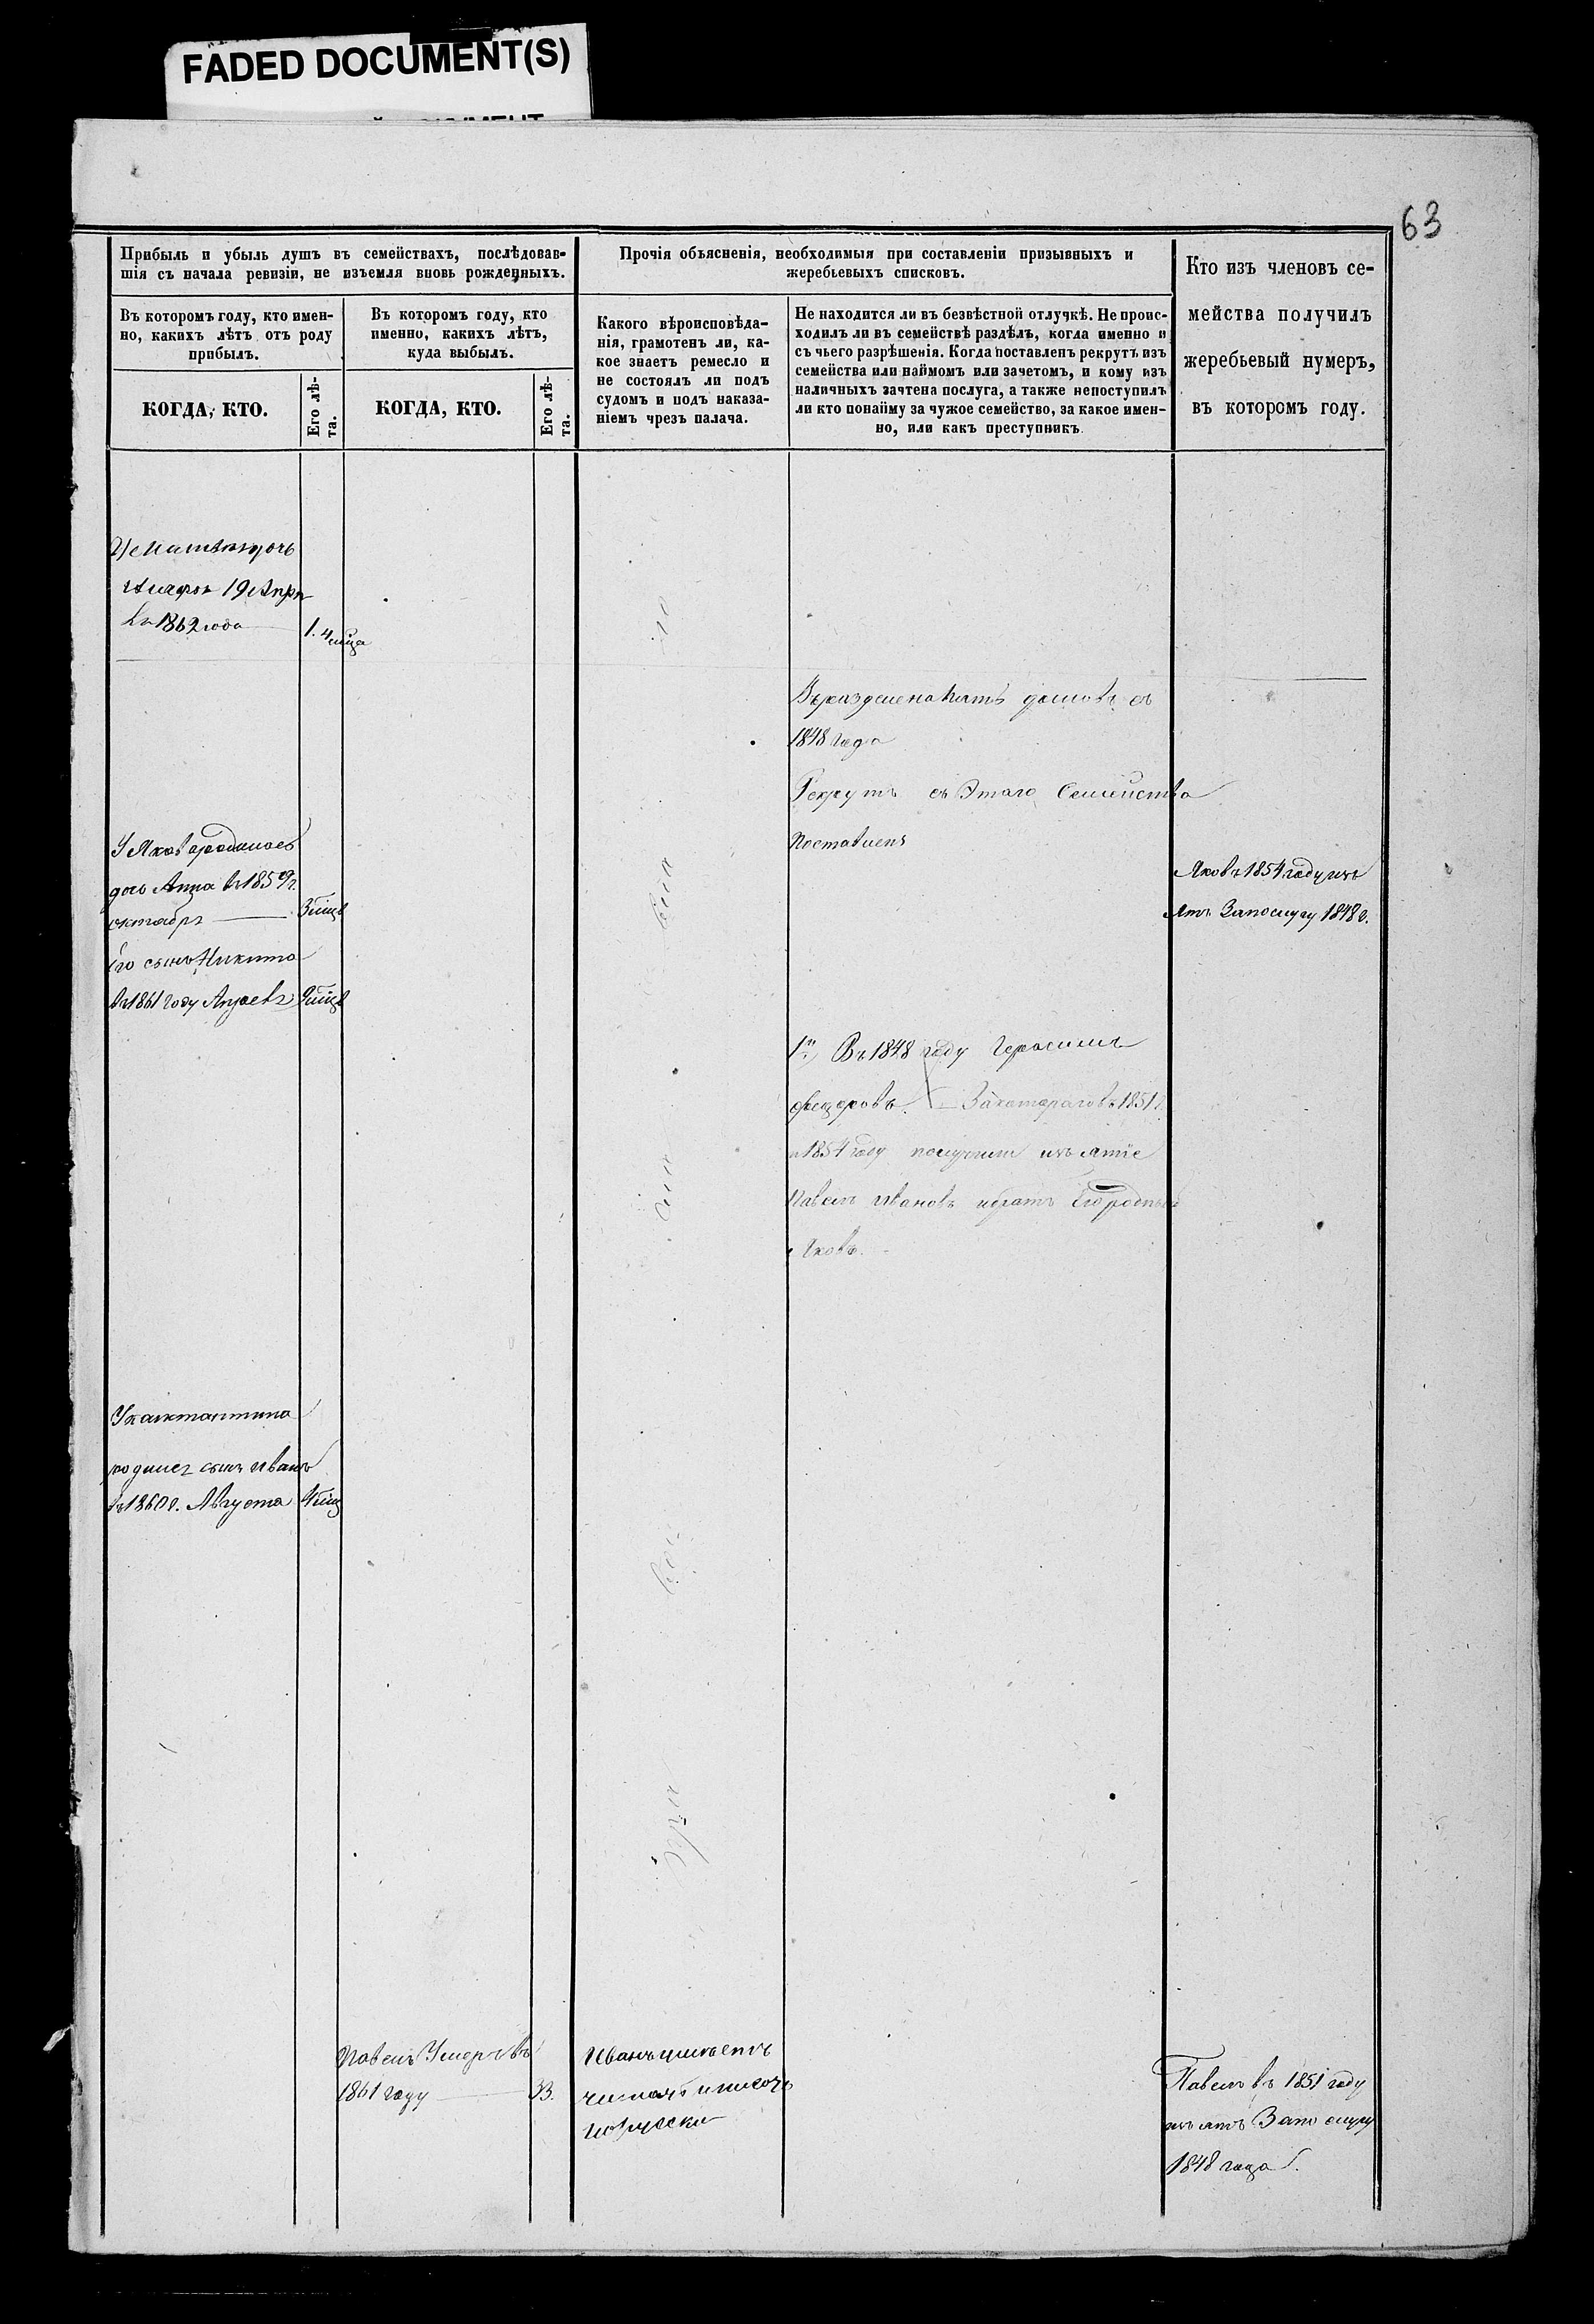 FADED DOCUMENT(S)
63
Прибыль и убыль душъ въ семействахъ, послѣдовав-
шія съ начала ревизіи, не изъемля вновь рожденныхъ.
Прочія объясненія, необходимыя при составленіи призывныхъ и
жеребьевыхъ списковъ.
Кто изъ членовъ се-
мейства получилъ
жеребьевый нумеръ,
въ которомъ году.
Въ которомъ году, кто имен-
но, какихъ лѣтъ отъ роду
прибылъ.
Въ которомъ году, кто
именно, какихъ лѣтъ,
куда выбылъ.
Какого вѣроисповѣда-
нія, грамотенъ ли, ка-
кое знаетъ ремесло и
не состоялъ ли подъ
судомъ и подъ наказа-
ніемъ чрезъ палача.
Не находится ли въ безвѣстной отлучкѣ. Не проис-
ходилъ ли въ семействѣ раздѣлъ, когда именно и
съ чьего разрѣшенія. Когда поставленъ рекрутъ изъ
семейства или наймомъ или зачетомъ, и кому изъ
наличныхъ зачтена послуга, а также непоступилъ
ли кто понайму за чужое семейство, за какое имен-
но, или какъ преступникъ.
КОГДА, КТО.
Его лѣ-
та.
КОГДА, КТО.
Его лѣ-
та.
19 Апрѣ
1862 года 1.
домовъ съ
1848 года
Рекрутъ съ Этаго Семейства
Поставленъ
У Якова родилась
дочь Анна въ 1859 г.
октябрѣ
Его сынъ Никита
въ 1861 году
Яковъ 1854 году изъ
ятъ Запослугу 1848 г.
1й, Въ 1848 году Герасимъ
Федоровъ. За котораго въ 1851 г.
и 1854 году получили изъятіе
Павелъ Ивановъ и братъ Его родный
Яковъ.
У Канстантина
родился сынъ Иванъ
въ 1860 г. Августа
Павелъ Умеръ въ
1861 году 33.
Иванъ умѣетъ
читать и писать
по Руски
Павелъ въ 1851 году
изъятъ За по слугу
1848 года